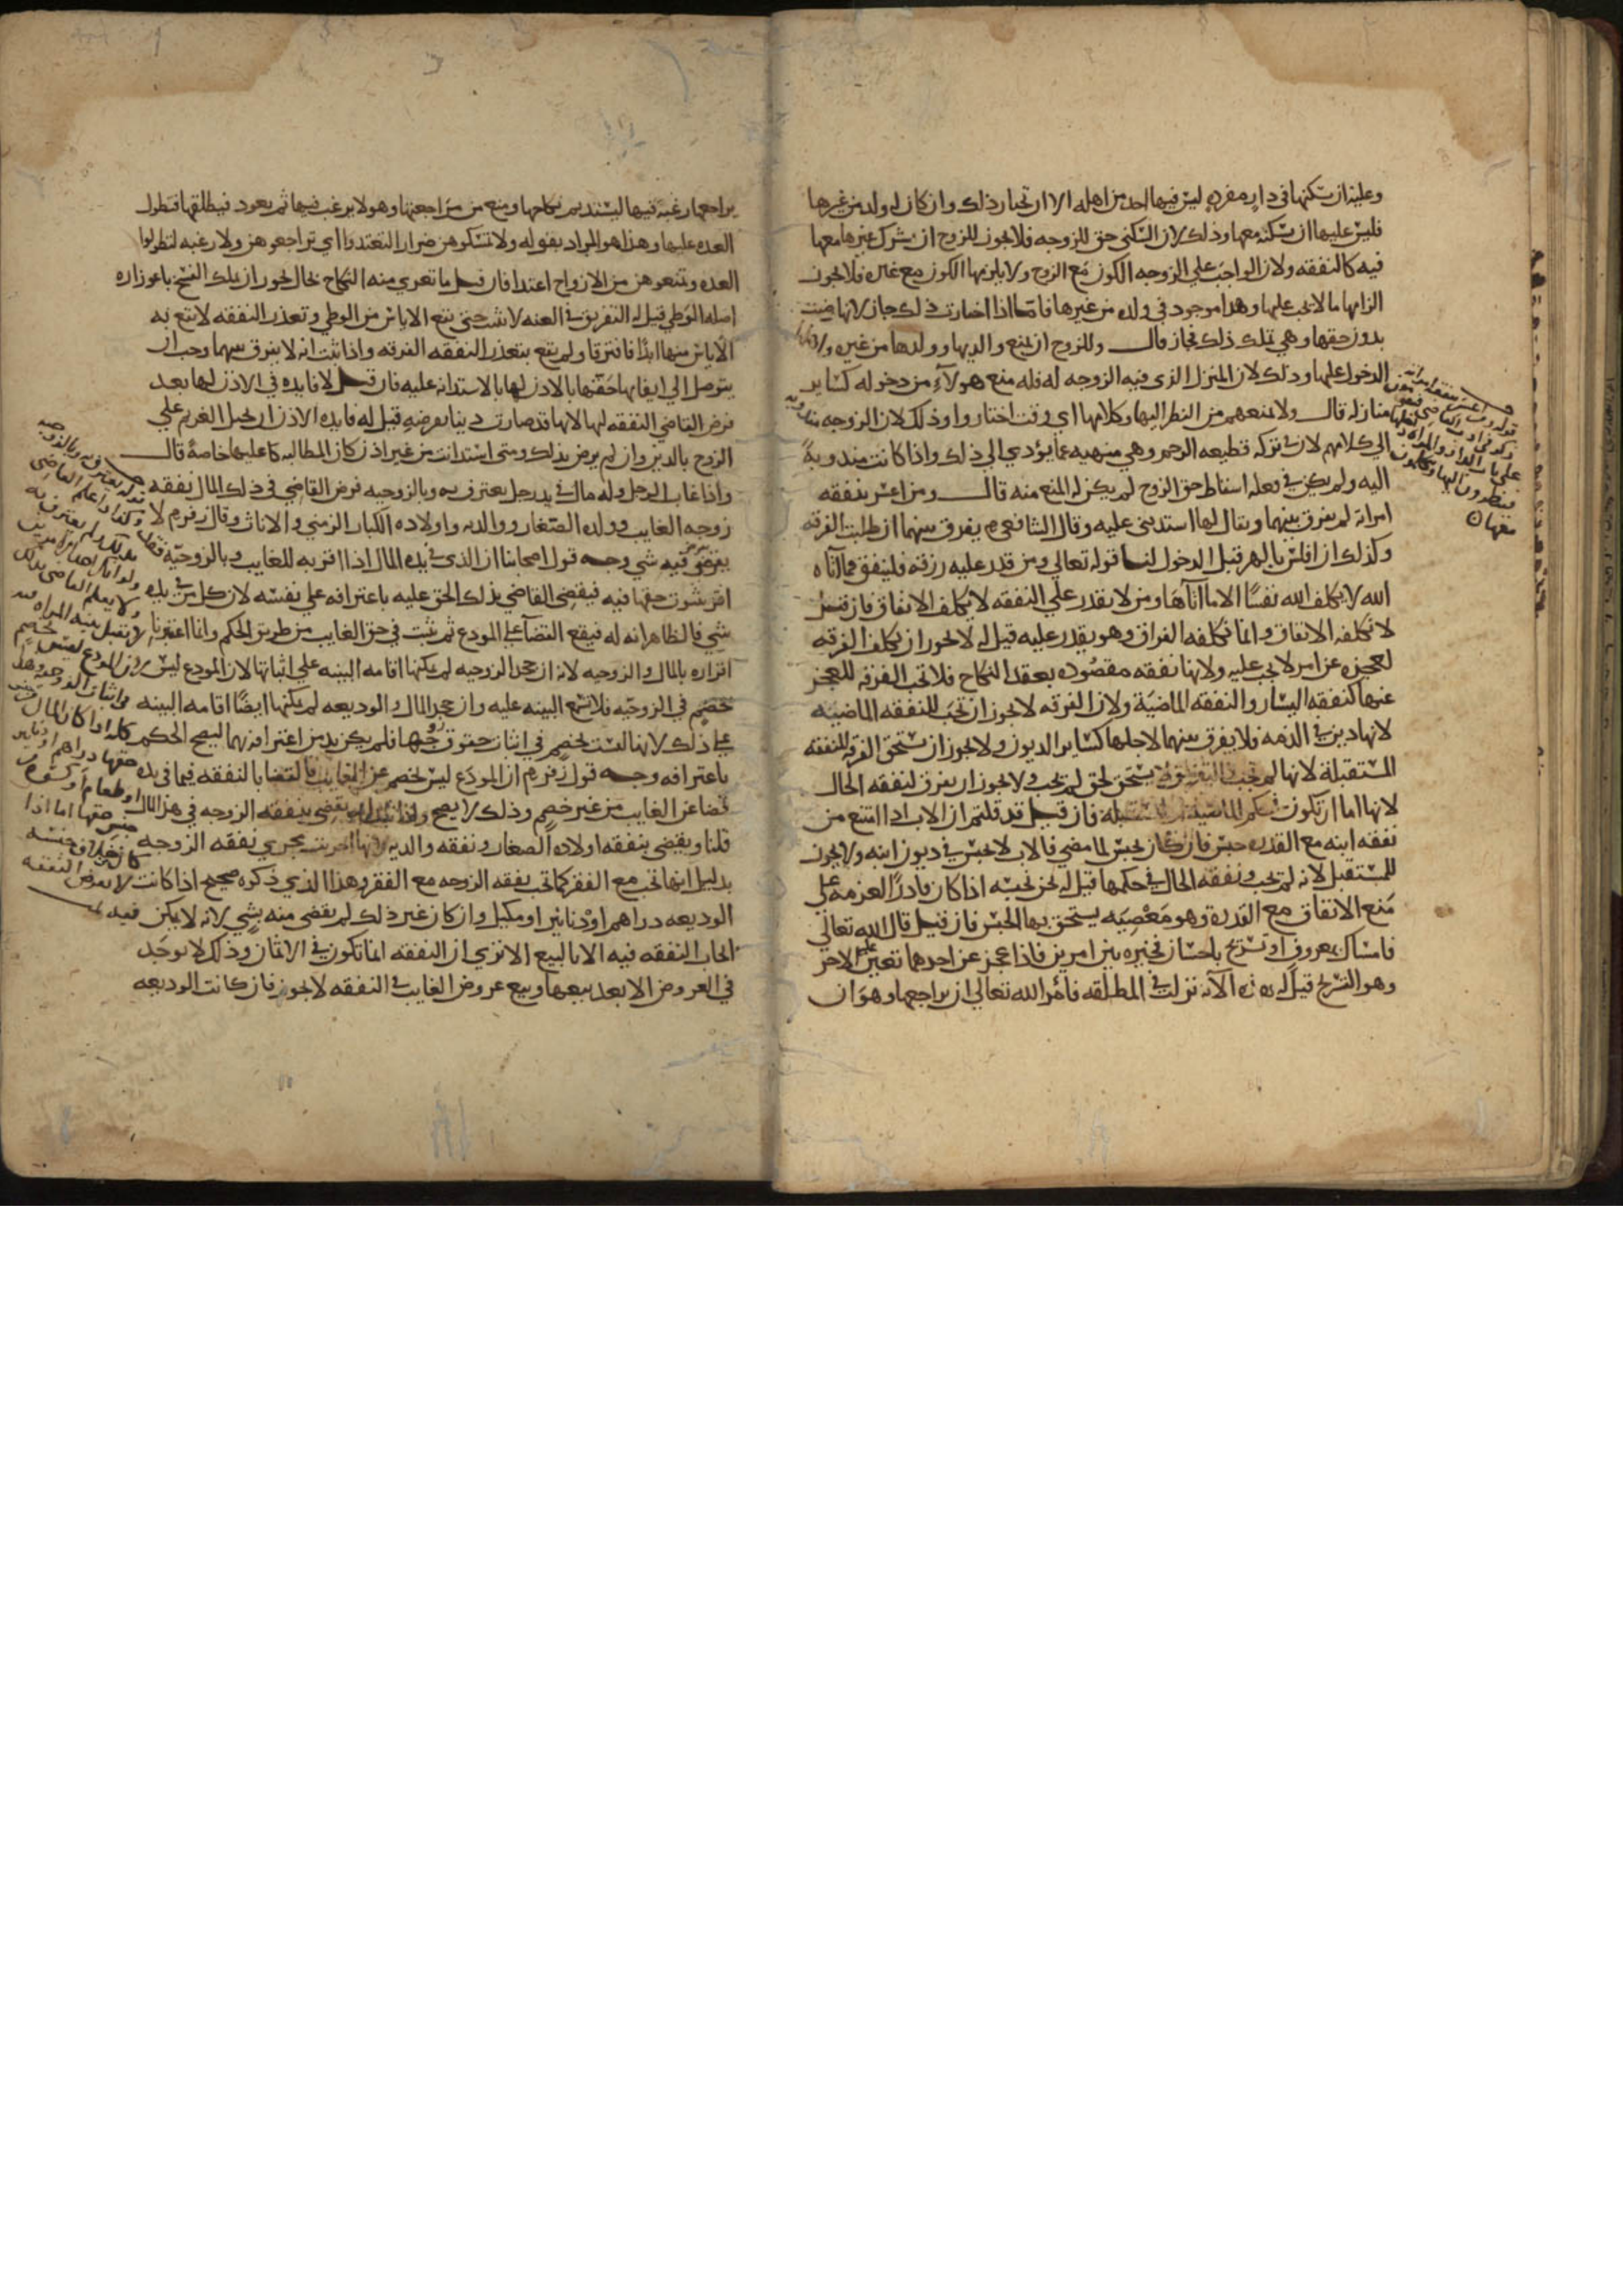 وعليه ان يسكنها في دار مفرده ليس فيها احد من اهله الا ان تختار ذلك وان كان له ولد من غيرها
فليس عليها ان يسكنه معها وذلك لان السكنى حق للزوجه فلا يجوز للزوج ان يشرك غيرها معها
فيه كالنفقه ولان الواجب على الزوجه الكون مع الزوج ولا يلزمها الكون مع غيره فلا يجوز
الزامها ما لا يجب عليها وهذا موجود في ولده من غيرها فاما اذا اختارت ذلك جاز لانها رضيت
بدون حقها وهي تملك ذلك فجاز قال وللزوج ان يمنع والديها وولدها من غيره
الدخول عليها وذلك لان المنزل الذي فيه الزوجه له فله منع هولاء من دخوله كساير
منازله قال ولا يمنعهم من النظر اليها وكلامها اي وقت اختاروا وذلك لان الزوجه مندوبه
الى كلامهم لان في تركه قطيعه الرحم وهي منهيه عما يؤدي الى ذلك واذا كانت مندوبة
اليه ولم يكن في فعله اسقاط حق الزوج لم يكن له المنع منه قال ومن اعسر بنفقه
امراته لم يفرق بينهما ويقال لها استديني عليه وقال الشافعي يفرق بينهما ان طلبت الفرقه
وكذلك ان افلس بالمهر قبل الدخول لنا قوله تعالى ومن قدر عليه رزقه فلينفق مما آتاه
الله لا يكلف الله نفسًا الا ما آتاها ومن لا يقدر على النفقه لا يكلف الانفاق فان قيل
لا نكلفه الانفاق وانما نكلفه الفراق وهو يقدر عليه قيل له لا يجوز ان يكلف الفرقه
لعجزه عن امر لا يجب عليه ولانها نفقه مقصوده بعقد النكاح فلا تجب الفرقه للعجز
عنها كنفقه اليسار والنفقه الماضية ولان الفرقه لا يجوز ان تجب للنفقه الماضيه
لانها دين في الذمه فلا يفرق بينهما لاجلها كساير الديون ولا يجوز ان يستحق الفرقه للنفقه
المستقبلة لانها لم تجب يستحق لحق لم يجب ولا يجوز ان يفرق لنفقه الحال
لانها اما ان تكون في حكم الماضيه او المستقبله فان قيل قد قلتم ان الاب اذا امتنع من
نفقه ابنه مع القدره حبس فان كان يحبس لما مضى فالاب لا يحبس في ديون ابنه ولا يجوز
للمستقبل لانه لم تجب ونفقه الحال في حكمها قيل له نحن نحبسه اذا كان قادرًا لعزمه على
منع الانفاق مع القدرة وهو معصيه يستحق بها الحبس فان قيل قال الله تعالى
فامساك بمعروف او تسريح باحسان فخيره بين امرين فاذا عجز عن احدهما تعين عليه الاخر
وهو التسريح قيل له هذه الآية نزلت في المطلقه فامر الله تعالى ان يراجعها وهو ان
فينظرون اليها ويكلمون
معها
يراجعها رغبة فيها ليستديم نكاحها ومنع من مراجعتها وهو لا يرغب فيها ثم يعود فيطلقها فتطول
العده عليها وهذا هو المراد بقوله ولا تمسكوهن ضرارا لتعتدوا اي تراجعوهن ولا رغبه لتطولوا
العده وتمنعوهن من الازواج اعتدا فان قيل ما تعرى منه النكاح بحال يجوز ان يملك الفسخ باعوازه
اصله الوطي قيل له التفريق في العنه لا يثبت حتى يقع الاياس من الوطي وتعذر النفقه لا يقع به
الاياس منها ابدًا فافترقا ولم يقع بتعذر النفقه الفرقه واذا ثبت انه لا يفرق بينهما وجب ان
يتوصل الى ايفائها حقها بالاذن لها بالاستدانه عليه فان قيل لا فايده في الاذن لها بعد
فرض القاضي النفقه لها لانها قد صارت دينا بفرضه قيل له فايده الاذن ان يحيل الغريم على
الزوج بالدين وان لم يرض بذلك ومتى استدانت من غير اذن كان المطالبه عليها خاصة قال
واذا غاب الرجل وله مال في يد رجل يعترف به وبالزوجيه فرض القاضي في ذلك المال نفقه
زوجه الغايب وولده الصغار ووالديه واولاده الكبار الزمنى والاناث وقال زفر لا
يفرض فيه شي وجه قول اصحابنا ان الذي في يده المال اذا اقر به للغايب وبالزوجية فقد
اقر بثبوت حقها فيه فيقضى القاضي بذلك الحق عليه باعترافه على نفسه لان كل من في يده
شي فالظاهر انه له فيقع القضآ على المودع ثم يثبت في حق الغايب من طريق الحكم وانما اعتبرنا
اقراره بالمال والزوجيه لانه ان جحد الزوجيه لم يمكنها اقامه البينه على اثباتها لان المودع ليس
خصم في الزوجيه فلا تسمع البينه عليه وان جحد المال والوديعه لم يمكنها ايضًا اقامه البينه
على ذلك لانها ليست بخصم في اثبات حقوق زوجها فلم يكن بد من اعترافه بهما ليصح الحكم
باعترافه وجه قول زفر ان المودع ليس بخصم عن الغايب فالقضا بالنفقه فيما في يده
قضا على الغايب من غير خصم وذلك لا يصح يقضى بنفقه الزوجه في هذا المال
قلنا ويقضى بنفقه اولاده الصغار ونفقه والديه لانها اجريت مجرى نفقه الزوجه
بدليل انها تجب مع الفقر كما تجب نفقه الزوجه مع الفقر وهذا الذي ذكره صحيح اذا كانت
الوديعه دراهم او دنانير او مكيل وان كان غير ذلك لم يقضى منه بشي لانه لا يمكن
ايجاب النفقه فيه الا بالبيع الا ترى ان النفقه انما تكون في الاثمان وذلك لا يوجد
في العروض الا بعد بيعها وبيع عروض الغايب في النفقه لا يجوز فان كانت الوديعه
قوله يعترف به وبالزوجيه
وكذا اذا علم القاضي
بذلك ولم يعترف به